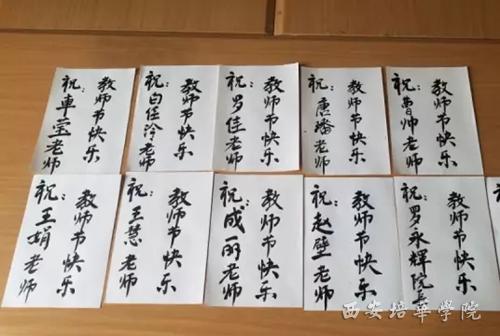 祝：車莹老师
教师节快乐
祝：白佳泠老师
教师节快乐
祝：罗佳老师
教师节快乐
祝：唐璠老师
教师节快乐
祝：曹帅老师
教师节快乐
祝：王娟老师
教师节快乐
祝：王慧老师
教师节快乐
祝：成丽老师
教师节快乐
祝：赵壁老师
教师节快乐
祝：罗永輝院
教师节快乐
西安培華学院